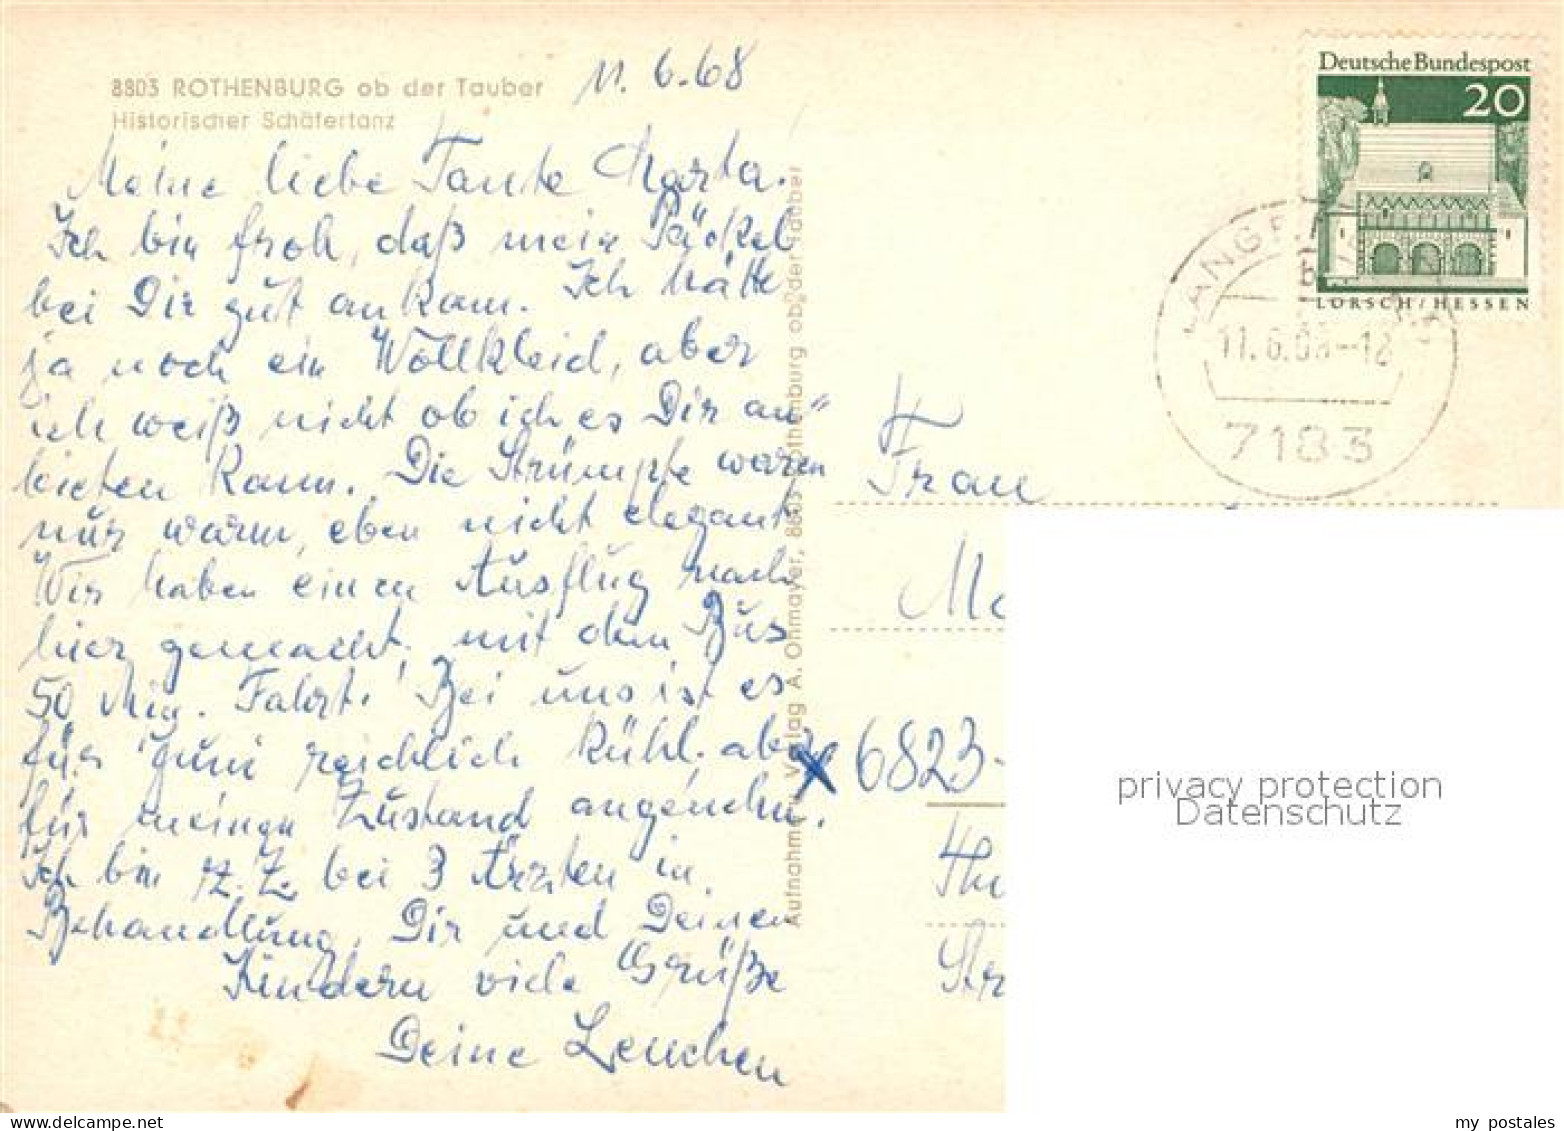 8803 ROTHENBURG ob der Tauber
Historischer Schäfertanz
11.6.68
Meine liebe Tante Marta.
Ich bin froh, daß mein Päckel
bei Dir gut ankam. Ich hätte
ja noch ein Wollkleid, aber
ich weiß nicht ob ich es Dir an"
bieten kann. Die Strümpfe waren
nur warm, eben nicht elegant.
Wir haben einen Ausflug nach
hier gemacht, mit dem Bus
50 Min. Fahrt. Bei uns ist es
für Juni reichlich kühl. aber
für meinen Zustand angenehm.
Ich bin z.Z. bei 3 Ärzten in
Behandlung. Dir und Deinen
Kindern viele Grüße
Deine Lenchen
Aufnahme u. Verlag A. Ohmayer, 8803 Rothenburg ob der Tauber
Deutsche Bundespost
20
LORSCH/HESSEN
11.6.68-12
7183
Frau
6823
Str
privacy protection
Datenschutz
my postales